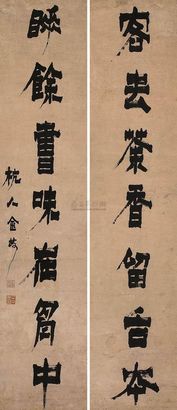 客去茶香留舌本
睡餘書味在胷中
杭人金農